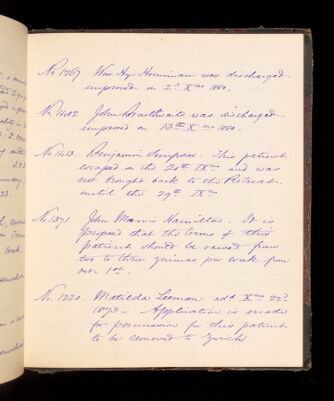 No 1267. Wm Hy Horniman was discharged
improved on 2nd Xmo 1880.
No 1402 John Braithwaite was discharged
improved on 13th Xmo 1880.
No 1413. Benjamin Simpson. This patient
escaped on the 20th IXmo and was
not brought back to the Retreat
until the 29th IXmo
No 1371 John Harris Hamilton. It is
proposed that the terms of this
patient should be raised from
two to three guineas per week from
1st.
No. 1220. Matilda add Xmo 22nd
1873 - Application is made
for permission for this patient
to be removed to Zurich